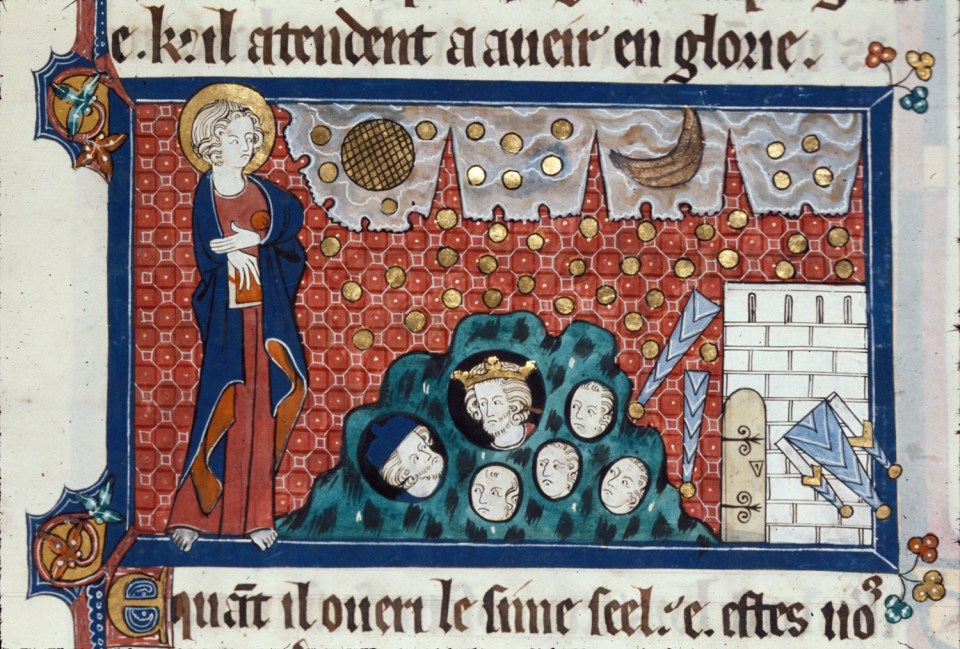 e. kꝛ. il atendent a aueir en glorie.
Equāt il oueri le sime seel. e. estes uoꝰ